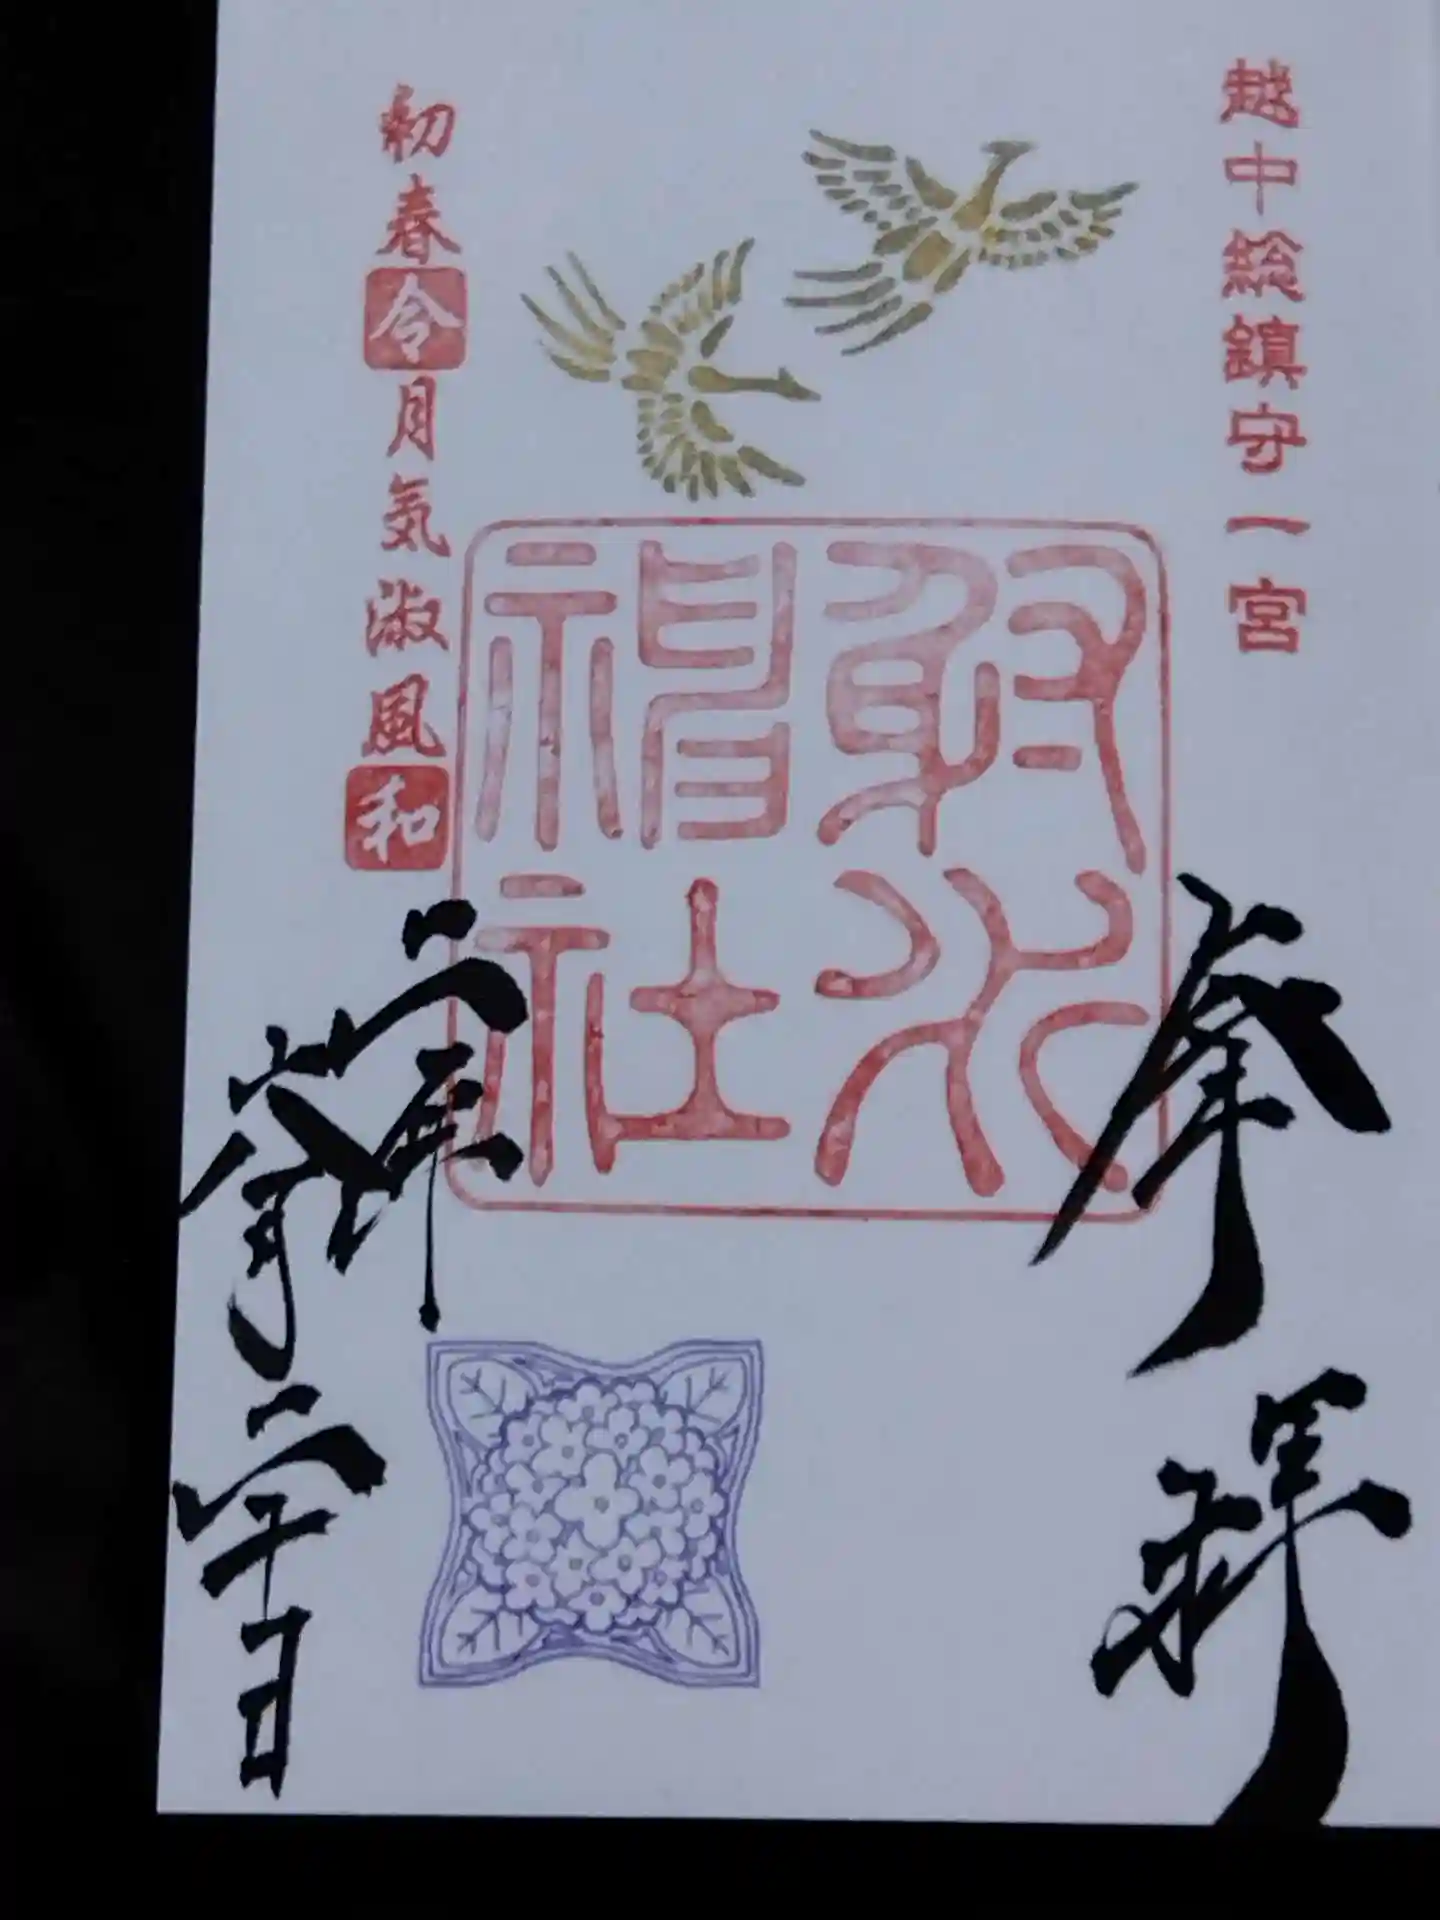 越中総鎮守一宮
奉拝
射水
神社
初春令月気淑風和
二年
六月二十日